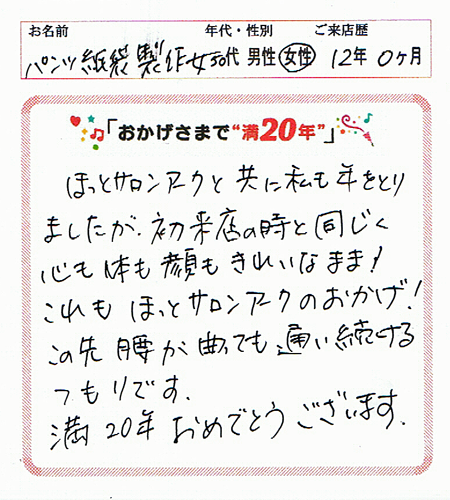 お名前 年代・性別 ご来店歴
パンツ紙袋製作女 50代 男性 女性 12年 0ヶ月
「おかげさまで“満20年”」
ほっとサロンアークと共に私も年をとり
ましたが、初来店の時と同じく
心も体も顔もきれいなまま!
これもほっとサロンアークのおかげ!
この先腰が曲っても通い続ける
つもりです。
満20年おめでとうございます。